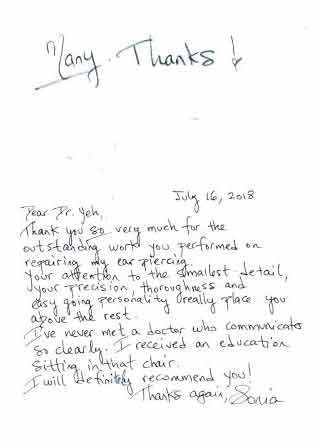 Many Thanks!
July 16, 2018
Dear Dr. Yeh,
Thank you so very much for the
outstanding work you performed on
repairing my ear piercing.
Your attention to the smallest detail,
your precision, thoroughness and
easy going personality really place you
above the rest.
I've never met a doctor who communicates
so clearly. I received an education
sitting in that chair.
I will definitely recommend you!
Thanks again, Sonia